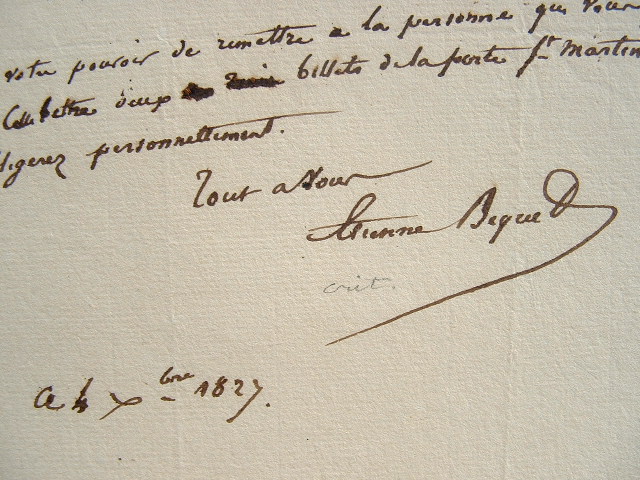 votre pouvoir de remettre a la personne qui vous
cette lettre deux billets de la porte St. Martin
ligerez personnellement.
Tout a vous
Etienne Bequet
crit.
Ce 4 Xbre 1827.